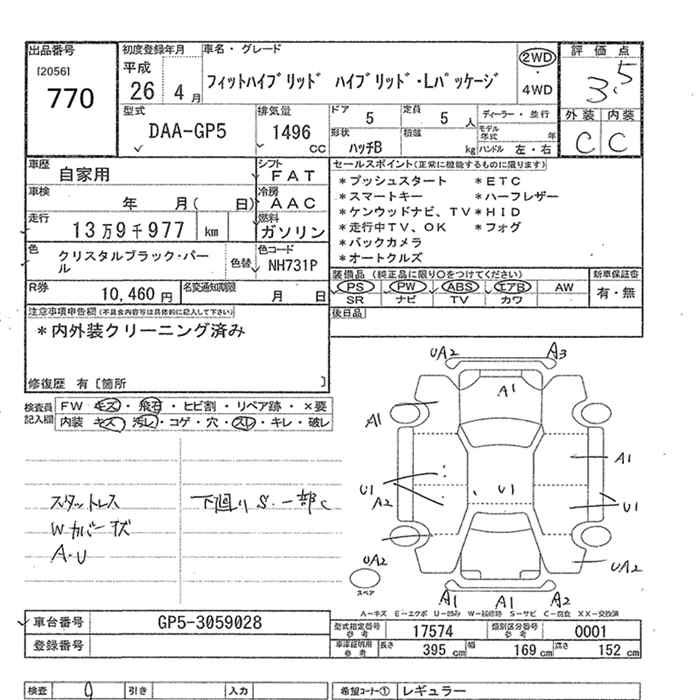 出品番号
[2056]
770
初度登録年月
平成
26 4月
車名・グレード
フィットハイブリッド ハイブリッド・Lパッケージ
2WD
・
4WD
評価点
3.5
外装 内装
C C
型式
DAA-GP5
排気量
1496
cc
ドア
5
定員
5人
形状
ハッチB
積載
kg
ディーラー・並行
モデル年式 年
ハンドル 左・右
車歴
自家用
シフト
FAT
車検
年 月 ( 日)
冷房
AAC
走行
13万9千977 km
燃料
ガソリン
色
クリスタルブラック・パール
色替
色コード
NH731P
R券
10,460円
名変通知期限
月 日
セールスポイント(正常に機能するものに限ります)
*プッシュスタート *ETC
*スマートキー *ハーフレザー
*ケンウッドナビ、TV*HID
*走行中TV、OK *フォグ
*バックカメラ
*オートクルズ
装備品 (純正品に限り○をつけてください)
PS PW ABS エアB AW
SR ナビ TV カワ
新車保証書
有・無
後日品
注意事項申告欄(不具合内容等は具体的に記入して下さい)
*内外装クリーニング済み
修復歴 有〔箇所 〕
検査員記入欄
FW キズ・飛石・ヒビ割・リペア跡・×要
内装 キズ・汚レ・コゲ・穴・スレ・キレ・破レ
スタットレス
Wカバー状
A・U
下回りS.一部C
UA2
A3
A1
A1
A1
U1
A2
U1
U1
UA2
スペア
A1
A1
A2
UA2
A-キズ E-エクボ U-凹み W-補修跡 S-サビ C-腐食 XX-交換済
車台番号
GP5-3059028
登録番号
型式指定番号
参考
17574
類別区分番号
参考
0001
車庫証明用
参考
長さ
395 cm
幅
169 cm
高さ
152 cm
検査
引き
入力
希望コーナー①
レギュラー